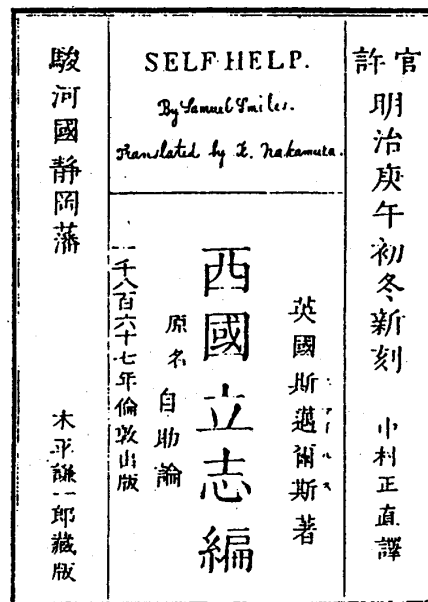 官許
明治庚午初冬新刻
中村正直譯
SELF HELP.
By Samuel Smiles.
Translated by K. Nakamura.
英國斯邁爾斯著
西國立志編
原名自助論
一千八百六十七年倫敦出版
駿河國靜岡藩
木平謙一郎藏版